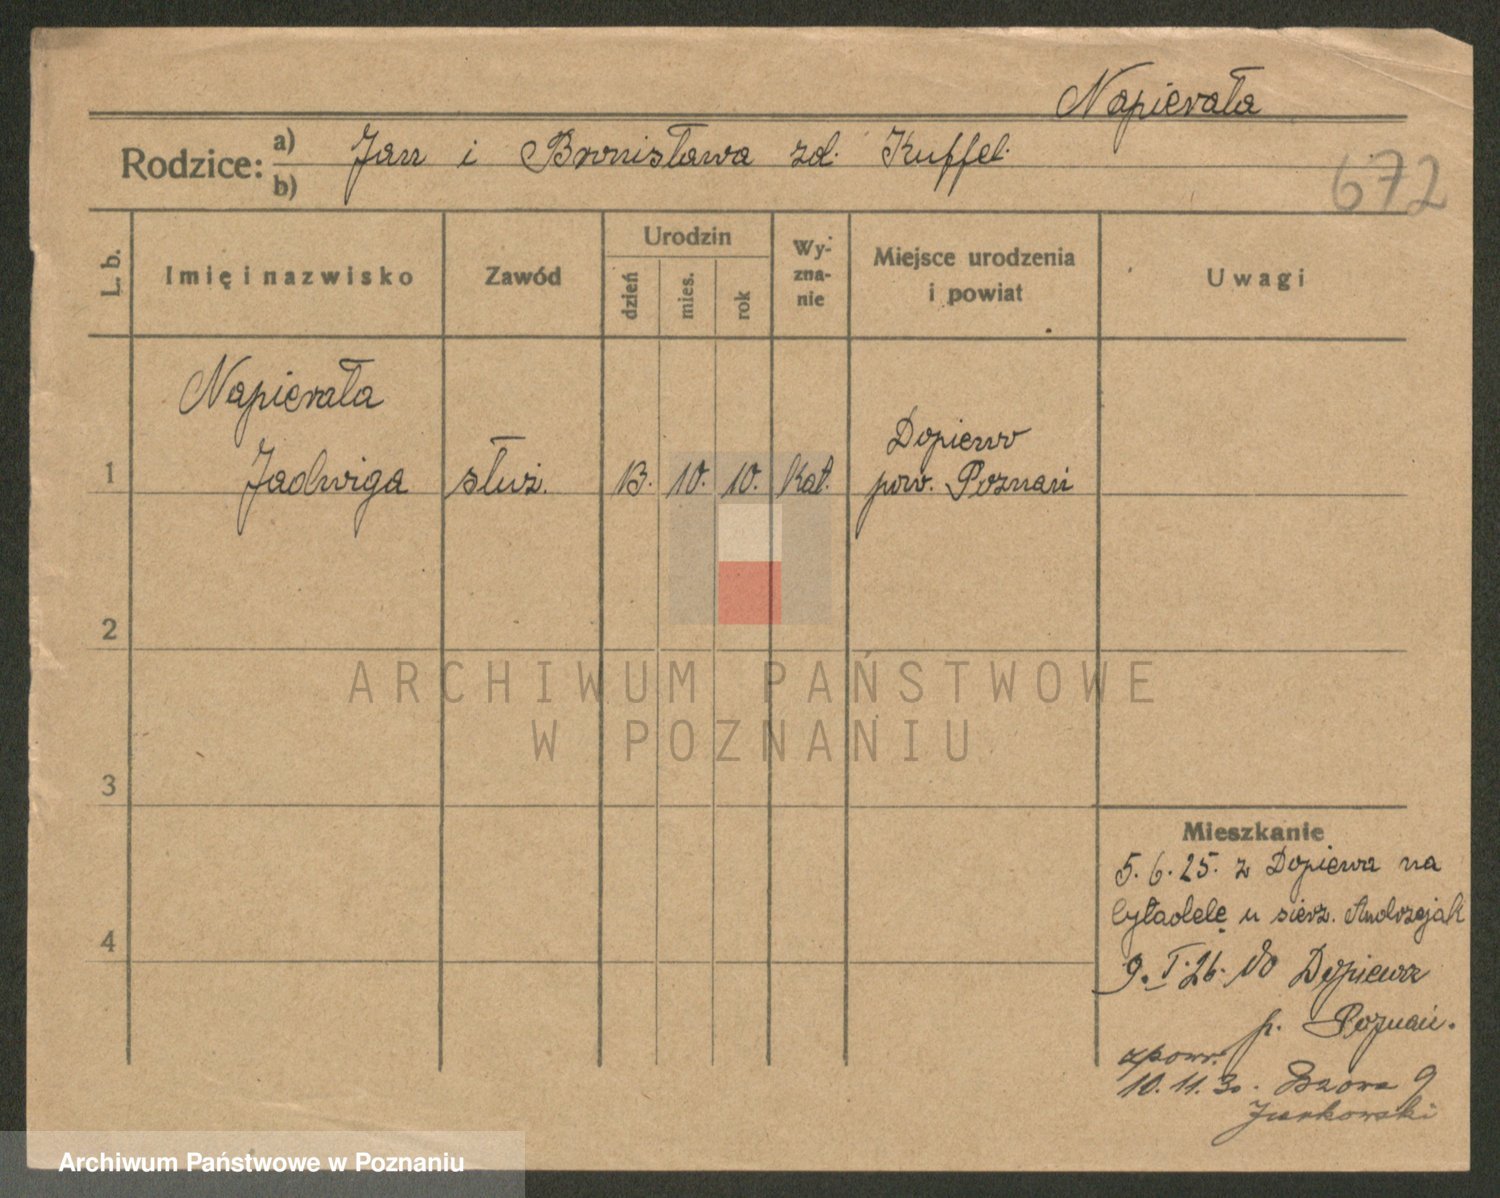 Napierała
Rodzice: a) Jan i Bronisława zd. Kuffel.
b)
672
L. b.
Imię i nazwisko
Zawód
Urodzin
dzień
mies.
rok
Wy-
zna-
nie
Miejsce urodzenia
i powiat
Uwagi
Napierała
1 Jadwiga służ. 13. 10. 10. Kat.
Dopiewo
pow. Poznań
2
3
4
ARCHIWUM PAŃSTWOWE
W POZNANIU
Mieszkanie
5.6.25. z Dopiewa na
Cytadelę u sierż. Andrzejak
9.I.26. do Dopiewa
p. Poznań.
zpowr.
10.11.30. Bzowa 9
Jurkowski
Archiwum Państwowe w Poznaniu